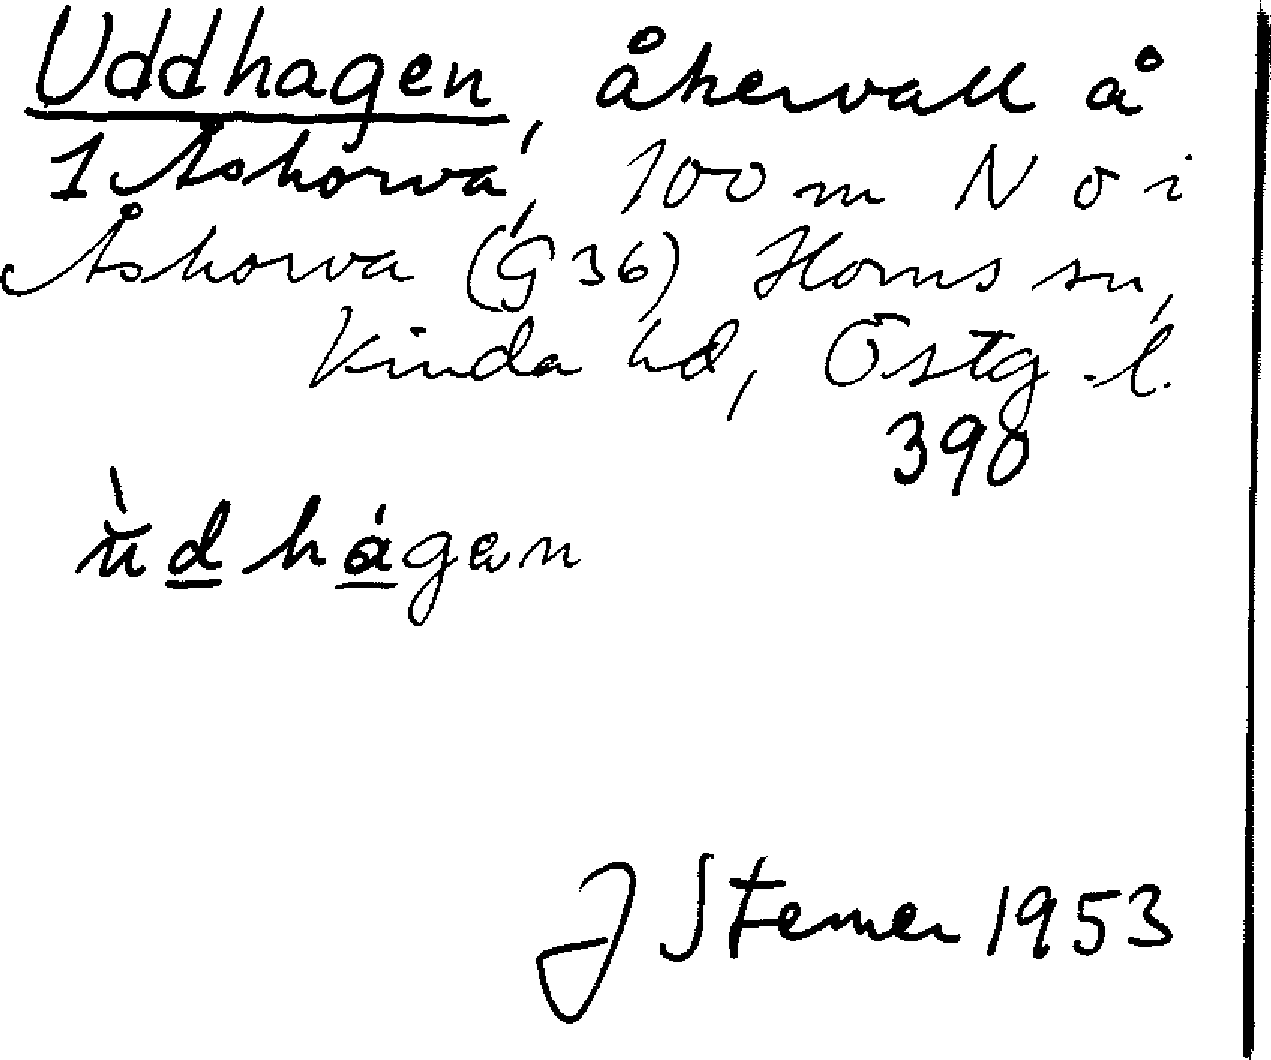 Uddhagen, åkervall å
1 Åskorva, 100 m N o i
Åskorva (G 36) Horns sn,
Kinda hd, Östg.l.
390
ùdhágen
J Sterner 1953